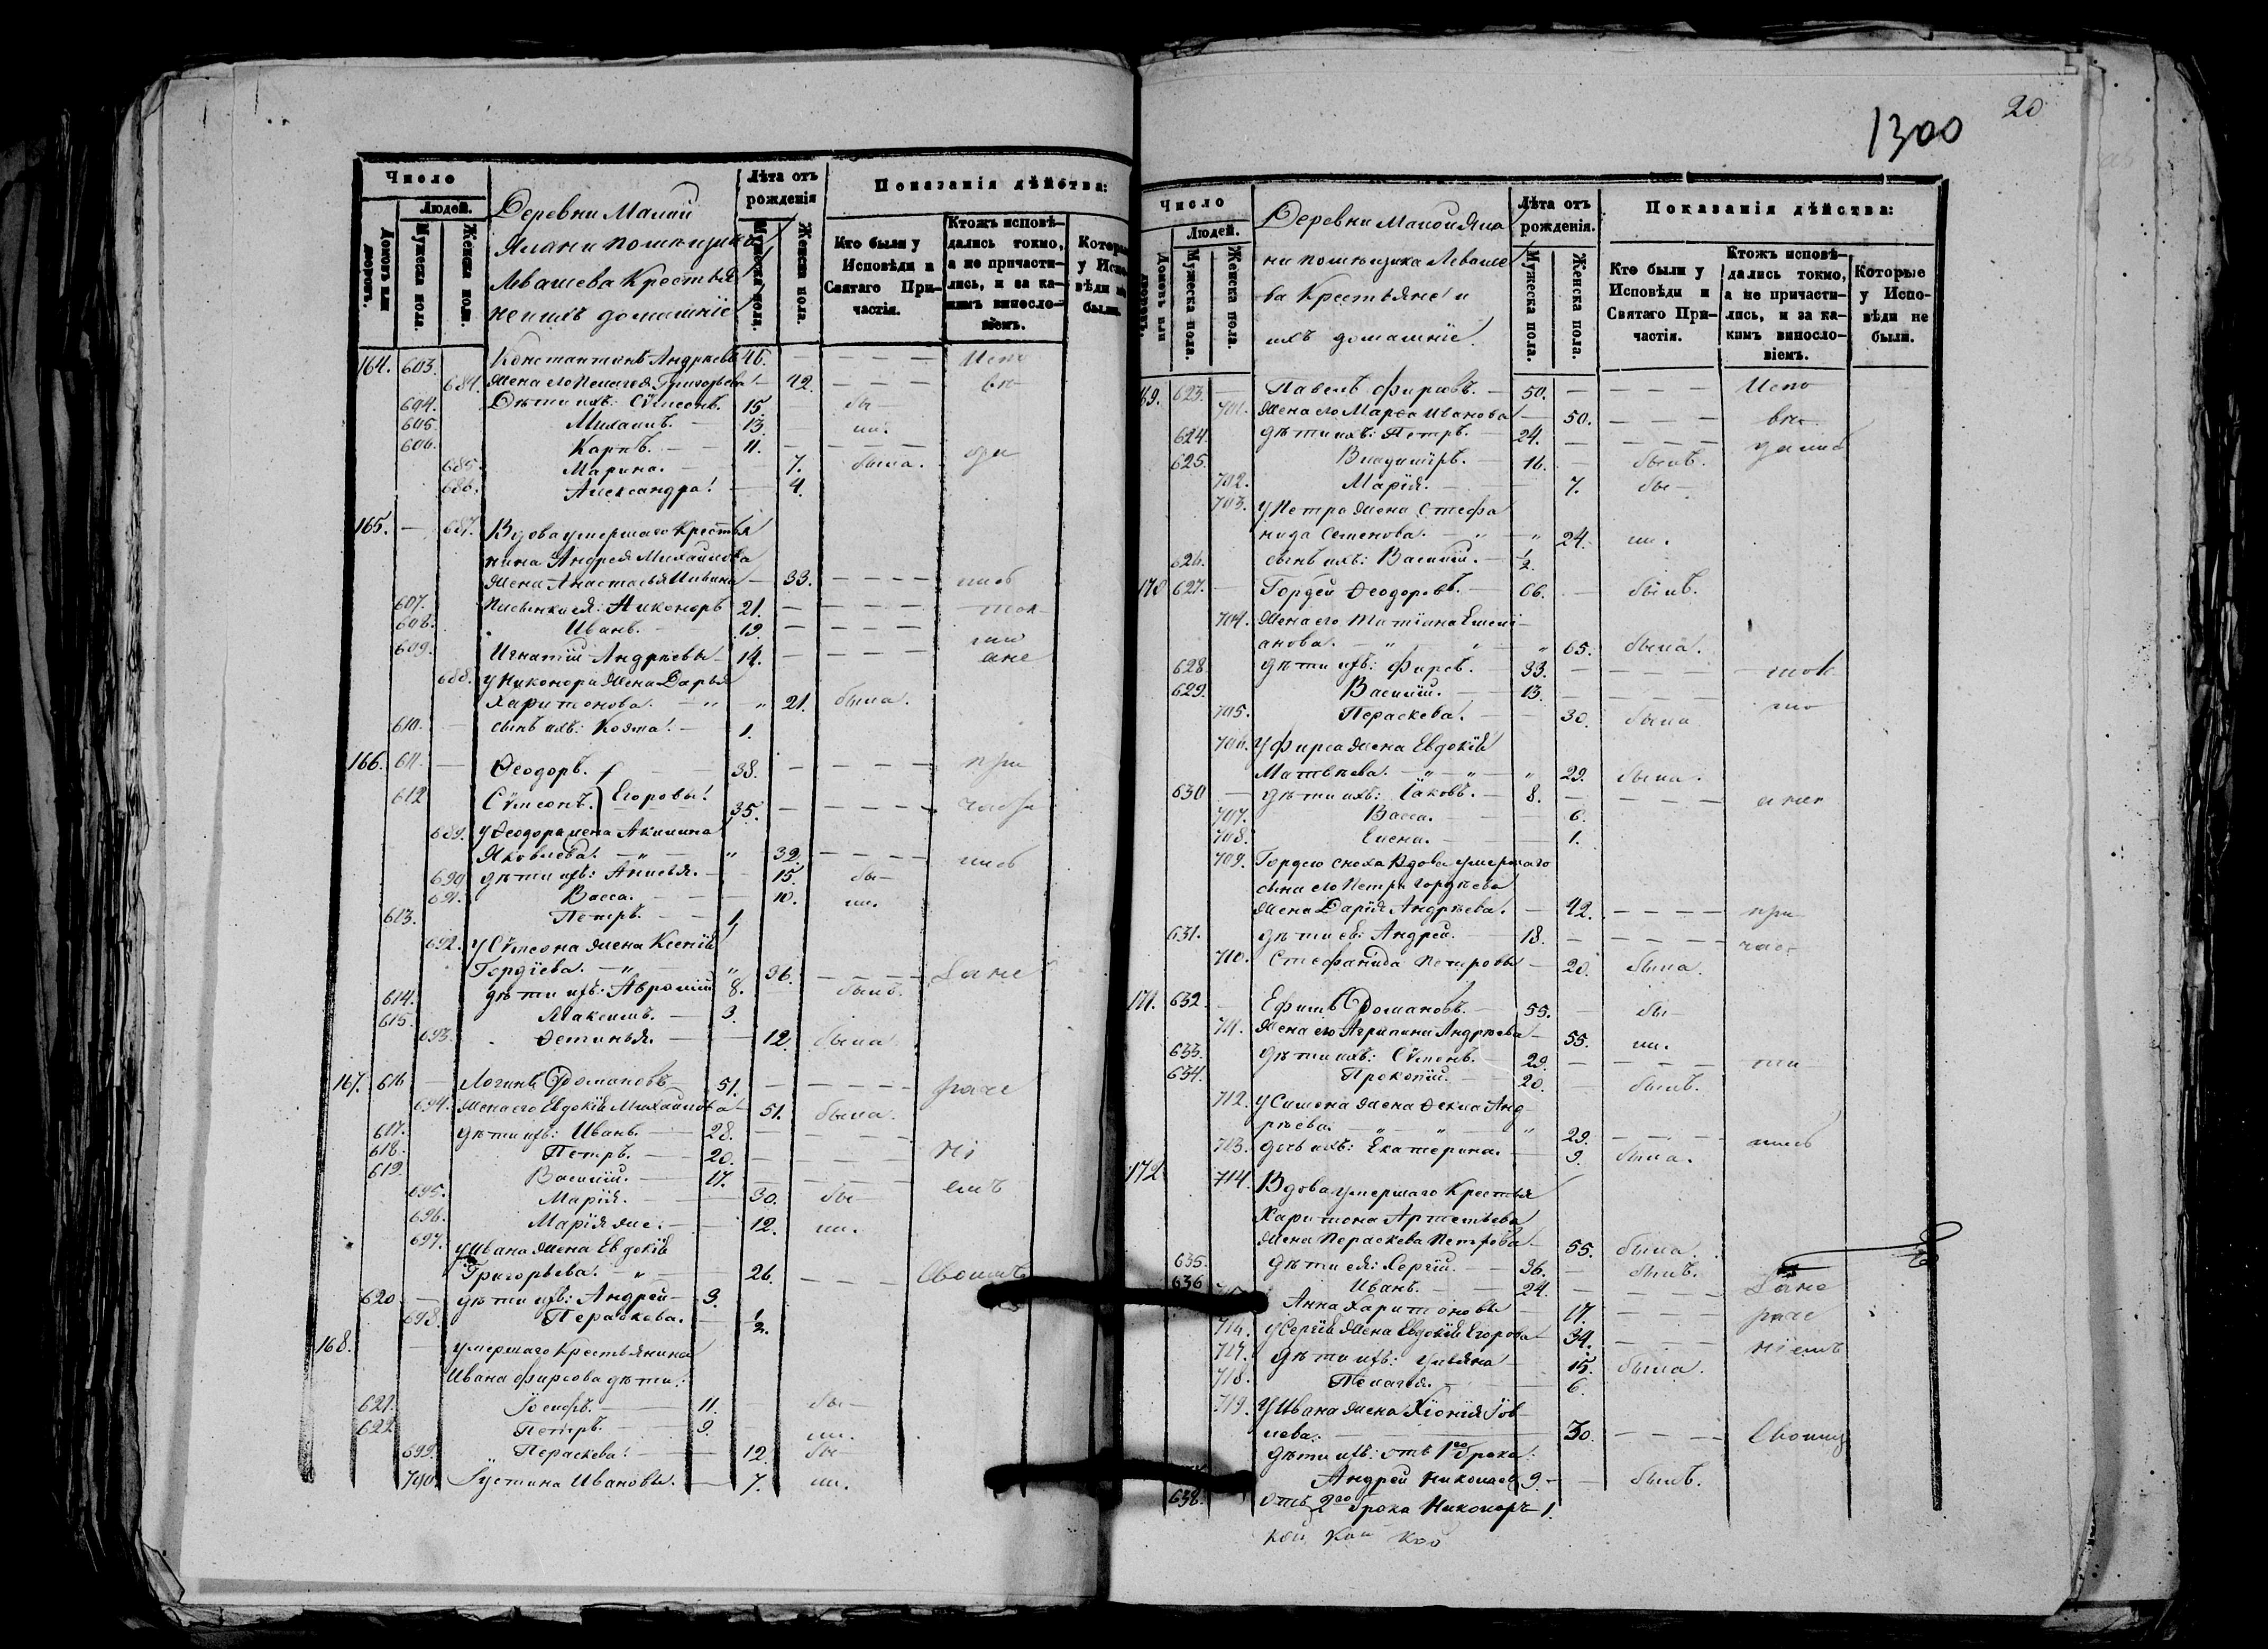 Число
Людей.
Домовъ или дворовъ.
Мужеска пола.
Женска пола.
Деревни Малай
Ялани помѣщика
Ивашева Крестья
не ихъ домашніе
Лѣта отъ рожденія
Мужеска пола.
Женска пола.
Показанія дѣйства:
Кто были у Исповѣди и Святаго При-частія.
Ктожъ исповѣ-дались токмо, а не причасти-лись, и за ка-кимъ винословіемъ.
164. 603. Константинъ Андреевъ 46. — — — Испо
684. Жена его Пелагея Григорьева — 42. — — — вѣ
604. Дѣти ихъ: Сѵмеонъ. 15. бы—
605. Михаилъ. — 13. ли.
606. Карпъ. — 11. — — —
685. Марина. — 7. была.
686. Александра. — 4.
165. — 687. Вдова умершаго Крестья
нина Андрея Михайлова
жена Анастасья — 33. — — — лись
607. Пасынки ея: Никоноръ 21. — — — — ток
608. Иванъ. 19. — — — мо
609. Игнатій Андреевы 14. — — — — а не
688. у Никонора жена Дарья
Харитонова. — „ — „ 21. была.
610. — сынъ ихъ: Козма. — 1.
166. 611. — Ѳеодоръ. — 38. — — — — при
612 Сѵмеонъ. } Егоровы. 35. — — — — части
689. у Ѳеодора жена Акилина
Яковлева. — „ — „ 32. — — — — лись
690 дѣти ихъ: Анисья. — 15. бы—
691. Васса. — 10. ли.
613. Петръ. — 1.
692. у Сѵмеона жена Ксенія
Гордіева. — „ „ 36. — — — —
614. дѣти ихъ: Авраамій 8. былъ.
615. Максимъ. — 3.
693. Ѳетинья. — 12. была.
167. 616 — Логинъ Романовъ 51. — — — — раче
694. Жена его Евдокія Михайлова — 51. была.
617. дѣти ихъ: Иванъ. — 28. — — — —
618. Петръ. — 20. — — — — ні
619. Василій. — 17. — — — емъ
695. Марія. — 30. бы—
696. Марія же. — 12. ли.
697. у Ивана жена Евдокія
Григорьева. — „ — 26. — — — — Своимъ
620 — дѣти ихъ: Андрей — 3.
698. Пераскева. — ½.
168. — умершаго Крестьянина
Ивана Фирсова дѣти:
621. Іосифъ. — 11. бы—
622 Петръ. — 9. ли.
699. Пераскева. — 12. бы—
700. Іустина Ивановы. — 7. ли.
20
1300
Число
Людей.
Домовъ или дворовъ.
Мужеска пола.
Женска пола.
Деревни Малой Яла
ни помѣщика Ивашe
ва Крестьяне и
ихъ домашніе.
Лѣта отъ рожденія.
Мужеска пола.
Женска пола.
Показанія дѣйства:
Кто были у Исповѣди и Святаго При-частія.
Ктожъ исповѣ-дались токмо, а не причасти-лись, и за ка-кимъ винословіемъ.
Которые у Испо-вѣди не были.
69. 623. — Павелъ Фирсовъ. — 50. — — — — Испо
701. Жена его Марѳа Иванова — 50. — — — вѣ
624. дѣти ихъ: Петръ. — 24. — — — —
625. Владиміръ. — 16. — былъ.
702. Марія. — 7. бы—
703. у Петра жена Стефа
нида Семенова. — „ — „ 24. ли.
626. сынъ ихъ: Василій. — ½.
170 627. — Гордей Ѳеодоровъ. — 66. — былъ.
704. Жена его Татіана Емели
анова. — „ „ 65. была.
628. дѣти ихъ: Фирсъ. — 33. — — — — ток
629. Василій. — 13. — — — — мо
705. Пераскева. — 30. была
706. у Фирса жена Евдокія
Матвѣева. — „ — „ — „ 29. была.
630 — дѣти ихъ: Іаковъ. — 8. — — — — а не
707. Васса. — 6.
708. Елена. — 1.
709. Гордею сноха вдова умершаго
сына его Петра Гордѣева
жена Дарія Андреева. — 42. — — — — при
631. дѣти ея: Андрей. — 18. — — — — час
710. Стефанида Петровы — 20. была.
171. 632. — Ефимъ Романовъ. — 55. — бы—
711. Жена его Агрипина Андреева — 55. ли.
633. дѣти ихъ: Сѵмеонъ. — 29. — — — ти
634. Прокопій. — 20. — былъ.
712. у Симеона жена Ѳекла Анд
реева. — „ — „ — „ 29. — — — лись
713. дочь ихъ: Екатерина. — 9. была.
172 714. Вдова умершаго Крестья
Харитона Артемьева
жена Пераскева Петрова — 55. была.
635. дѣти ея: Сергій. — 36. — былъ.
636 Иванъ. — 24. — — — —
Анна Харитоновы — 17. — — — раче
716. у Сергія жена Евдокія Егорова — 34. — — — ніемъ
717. дѣти ихъ: Ульяна — 15. была.
718. Пелагея. — 6.
719. у Ивана жена Хіонія Іов
лева. — 30. — — — Своимъ
дѣти ихъ: отъ 1го брака:
Андрей Николаевъ 9 — — былъ.
638. отъ 2го брака Никоноръ 1.